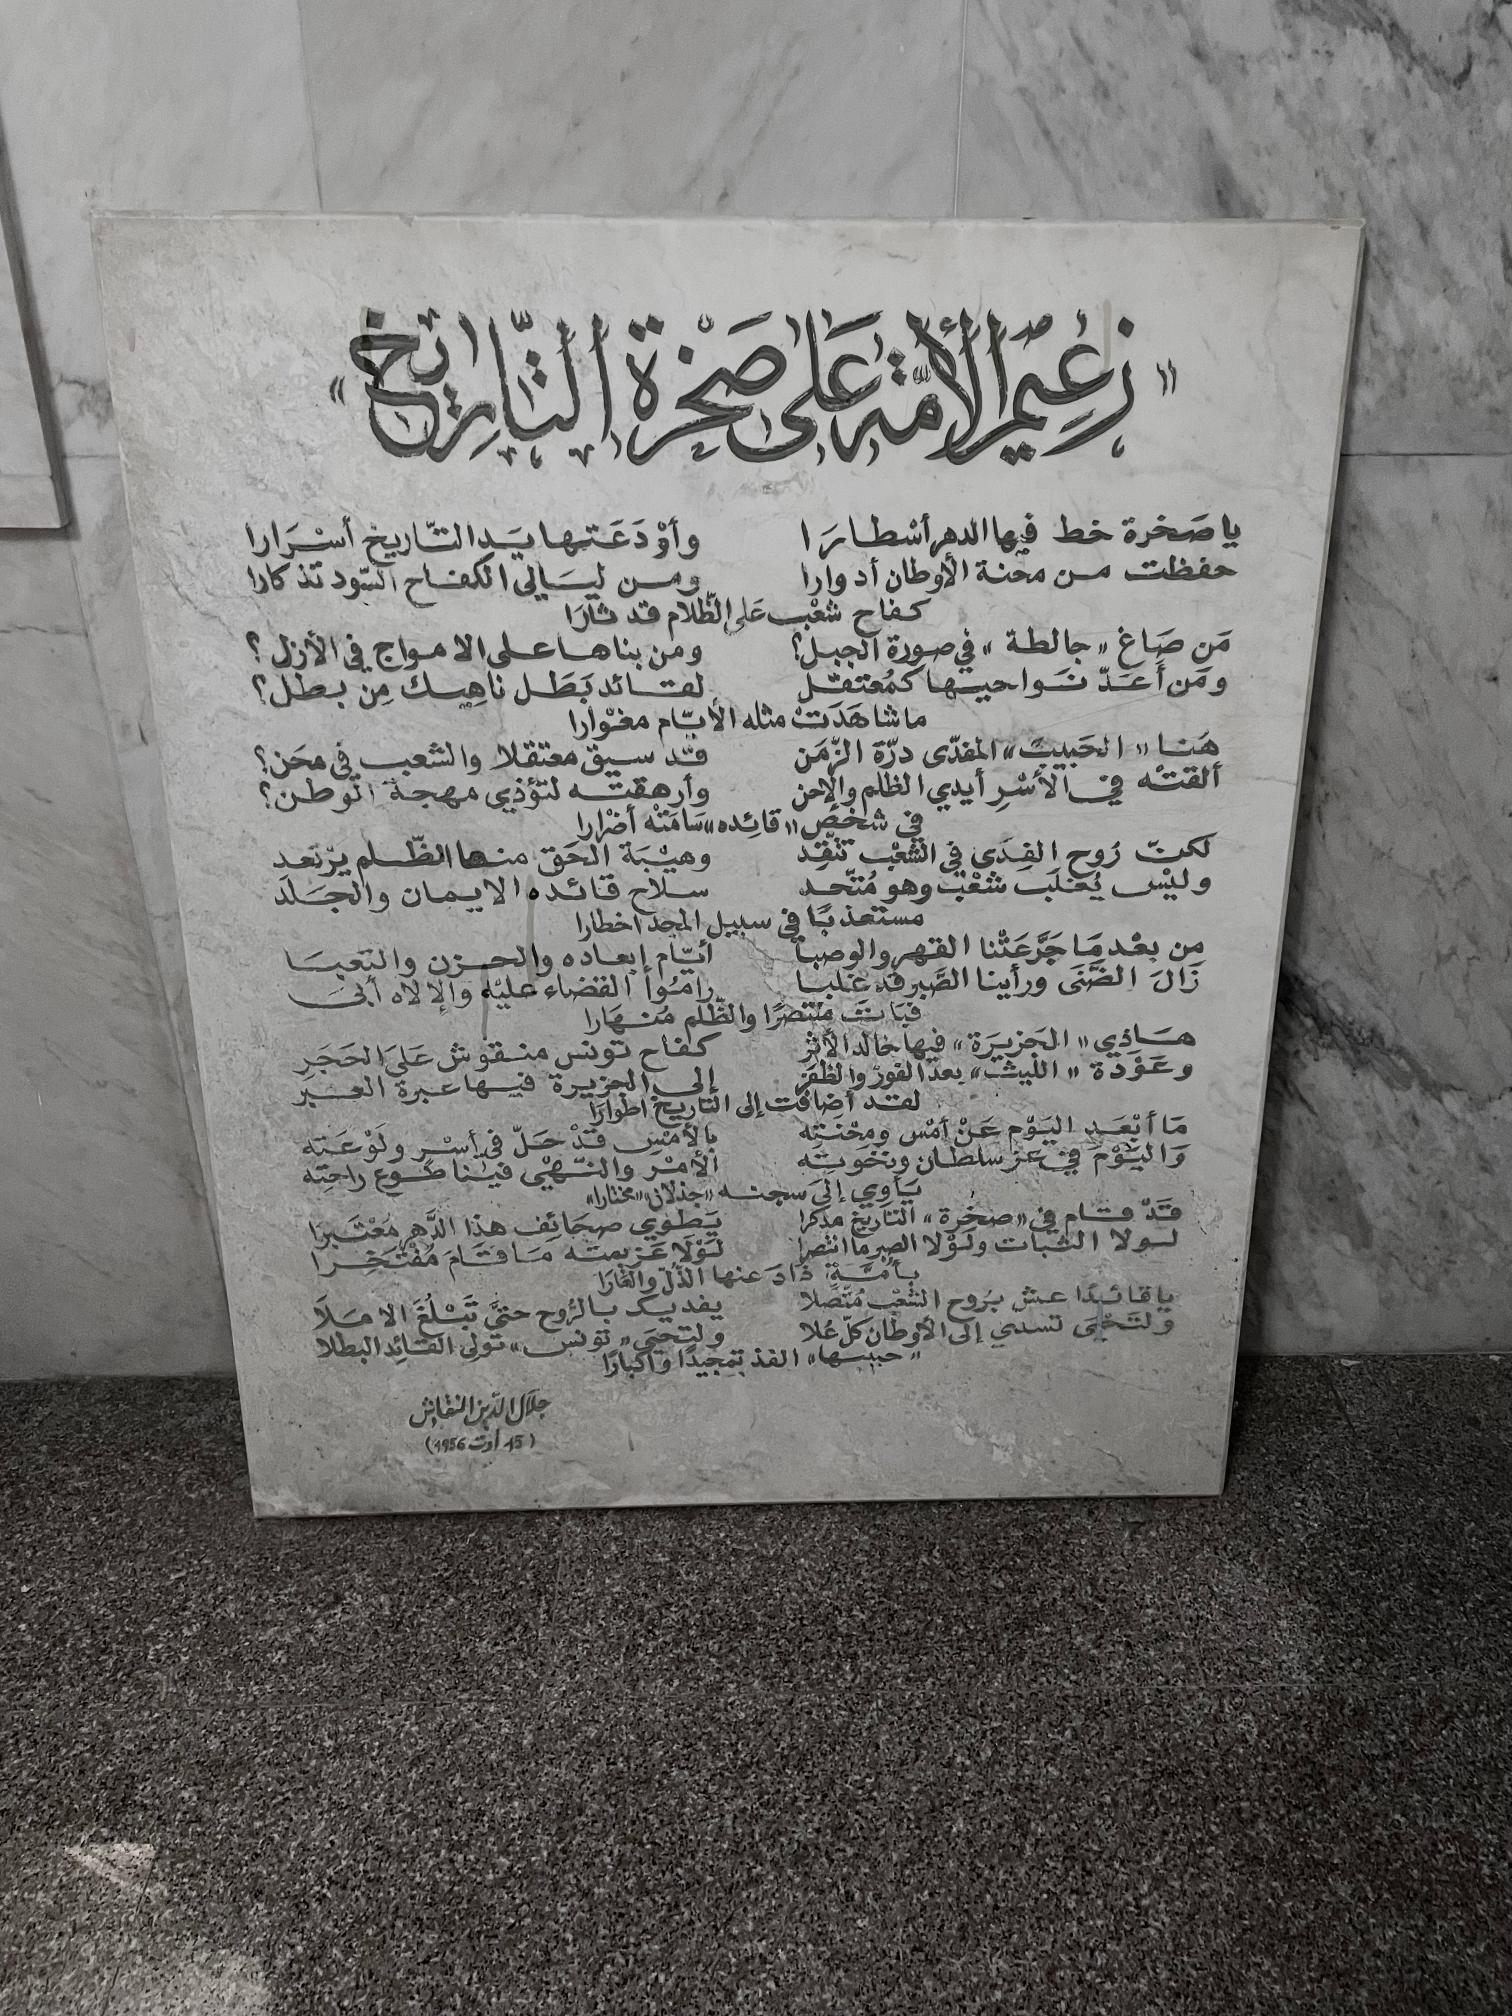 « زَعِيمُ الأُمَّة عَلَى صَخْرة التَّارِيخ »
يا صَخرة خط فيها الدهر أسْطارَا وأوْدَعَتها يَد التّاريخ أسْرَارا
حفظت من محنة الأوطان أدوارا ومن ليَالي الكفاح السّود تذكارا
كفاح شعْب عَلى الظّلام قد ثارَا
مَن صَاغ « جالطة » في صورة الجبل؟ ومن بناها على الامواج في الأزل؟
ومَن أَعَدّ نَواحيها كَمُعتقَل لقائد بَطَل ناهِيك مِن بطل؟
ما شاهَدَتْ مثله الأيّام مغْوارا
هَنا « الحَبيبُ » المفدّى درّة الزّمَن قد سيق معتقلا والشعب في محَن؟
ألقتْه في الأسْرِ أيدي الظلم والإحن وأرهقته لتؤذي مهجة الوطن؟
في شخص « قائده » سَامَتْه أضْرارا
لكنّ رُوح الفِدَى في الشّعْب تتّقد وهيْبَة الحَق منها الظّلم يرْتعد
وليْس يُغلَب شعْب وهو مُتّحد سلاح قائده الايمان والجَلَد
مستعذبًا في سبيل المجد اخطارا
من بعْد مَا جَرَّعَتْنا القهر والوصبا أيّام إبعاده والحزن والتعبَا
زَالَ الضَّنَى ورأينا الصَّبر قد غلبا رامُوا القضاء عليْه والإلاه أبىَ
فبَاتَ منْتصرًا والظّلم مُنهَارا
هَاذي « الجَزيرَة » فيها خالد الأثر كفاح تونس منقوش عَلىَ الحَجَرِ
وعَوْدة « اللّيث » بعد الفوْز والظفَر إلى الجزيرة فيها عبرة العبَر
لقد أضافت إلى التاريخ اطوارَا
مَا أبْعَد اليَوْم عَنْ أمْس ومحْنتِه بالأمْسِ قَدْ حَلّ في أسْر ولَوْعَته
وَاليَوْمَ في عز سلطان ونخوتِه الأمْر والنّهْي فينا طَوع راحتِه
يَأوي إلىَ سجنه « جذلان » « مختارا »
قَدْ قام في « صخرة » التاريخ مدكرا يَطوي صحَائِف هذا الدَّهر مُعْتَبرَا
لولا الثبات ولوْلا الصبر ما انتصرا لَوْلَا عَزيمته مَا قَامَ مُفْتَخِرا
بأمّةٍ ذادَ عنها الذّلّ والعَارَا
يا قائدًا عش برُوح الشّعْب مُتّصلا يفديك بالرُّوح حتىَّ تَبْلُغَ الامَلَا
ولتَحْيَ تسدي إلى الأوطان كلّ عُلا ولتحيَ « تونس » تولي القائد البطلا
« حبيبها » الفذ تمجيدًا واكبارًا
جلال الدّين النقاش
(15 أوت 1956)